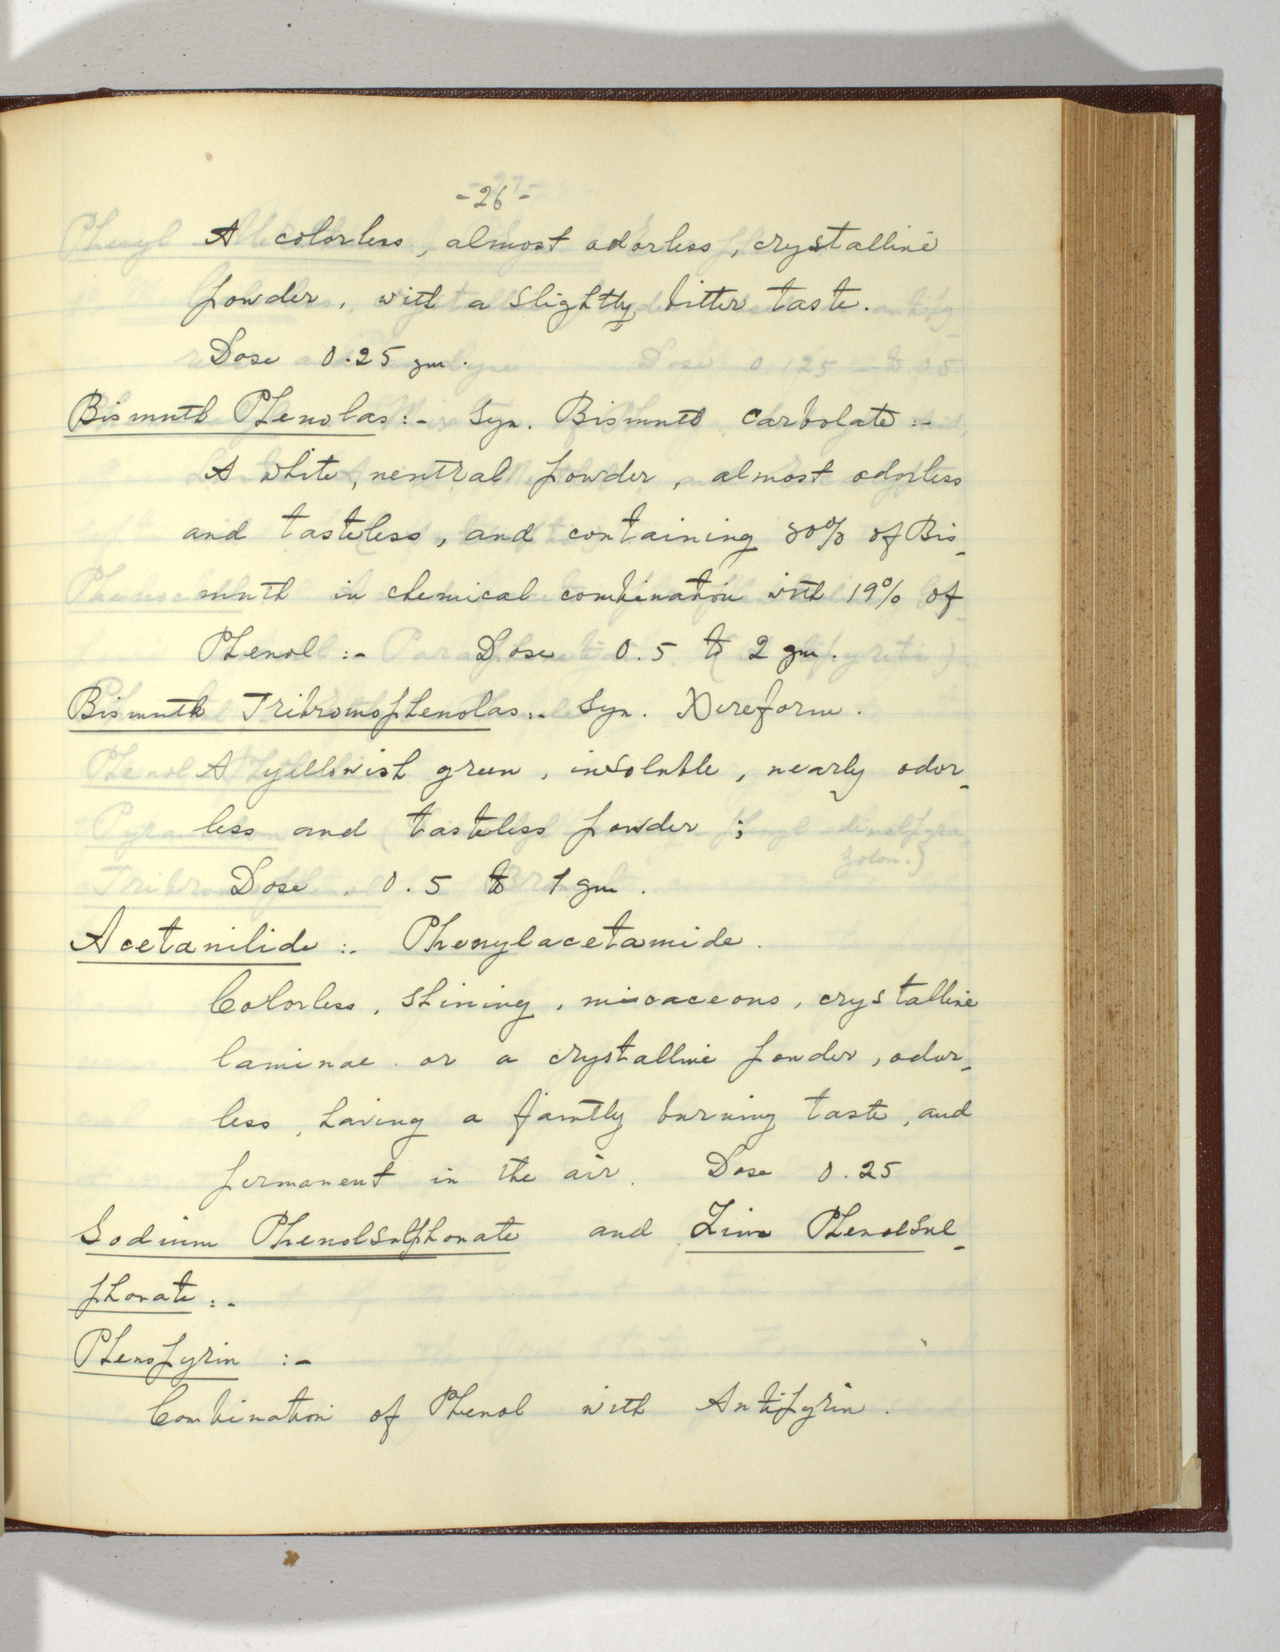 -26-
A colorless, almost odorless, crystalline
powder, with a slightly bitter taste.
Dose 0.25 gm.
Bismuth Phenolas:- Syn. Bismuth carbolate :-
A white, neutral powder, almost odorless
and tasteless, and containing 80% of Bis-
muth in chemical combination with 19% of
Phenol :- Dose 0.5 to 2 gm.
Bismuth Tribromophenolas:- Syn. Xereform.
A yellowish green, insoluble, nearly odor-
less and tasteless powder ;
Dose 0.5 to 1 gm.
Acetanilide :- Phenylacetamide.
Colorless, shining, micaceous, crystalline
laminae or a crystalline powder, odor-
less, having a faintly burning taste, and
permanent in the air. Dose 0.25
Sodium Phenolsulphonate and Zinc Phenolsul-
phonate :-
Phenopyrin :-
Combination of Phenol with Antipyrin.